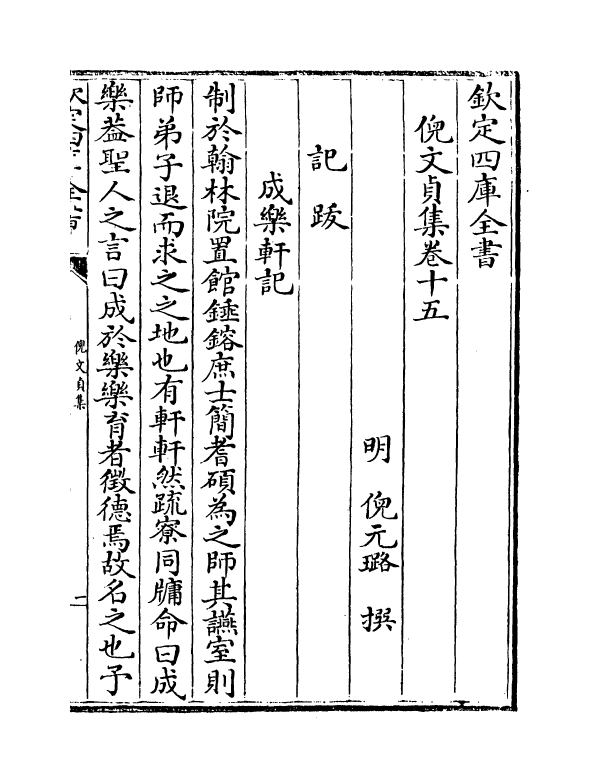 欽定四庫全書
倪文貞集卷十五
明 倪元璐 撰
記 跋
成樂軒記
制於翰林院置館錘鎔庶士簡耆碩為之師其讌室則
師弟子退而求之之地也有軒軒然疏寮同牖命曰成
樂葢聖人之言曰成於樂樂育者徵德焉故名之也予
欽定四庫全書
倪文貞集